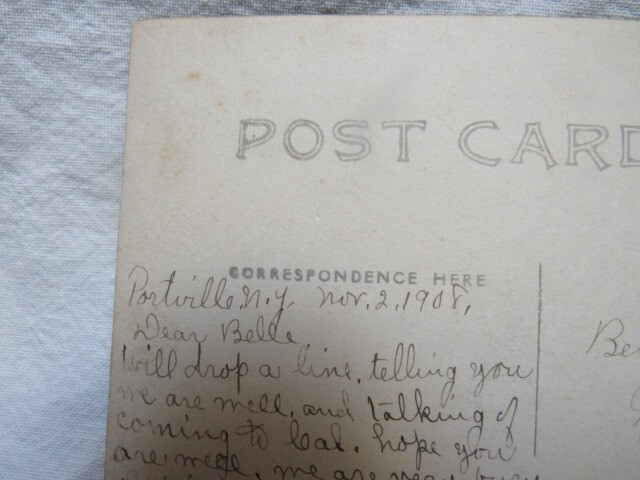 POST CARD
CORRESPONDENCE HERE
Portville, N.Y. Nov. 2, 1908,
Dear Belle,
Will drop a line, telling you
we are well, and talking of
coming to Cal. hope you
are well, we are very busy
Be